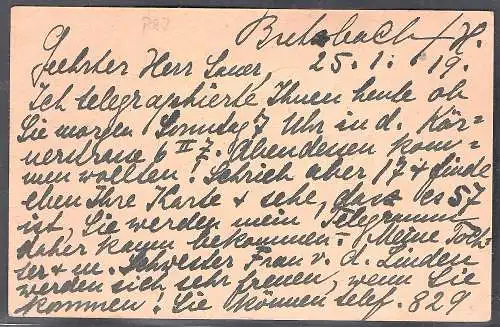 P87
Butzbach/H.
25.1.19.
Geehrter Herr Sauer,
Ich telegraphierte Ihnen heute ob
Sie morgen Sonntag 7 Uhr in d. Kör-
nerstrasse 6 II z. Abendessen kom-
men wollten! Schrieb aber 17 + finde
eben Ihre Karte + sehe, dass es 57
ist, Sie werden mein Telegramm
daher kaum bekommen. – Meine Toch-
ter + m. Schwester Frau v. d. Linden
werden sich sehr freuen, wenn Sie
kommen! Sie können telef. 829